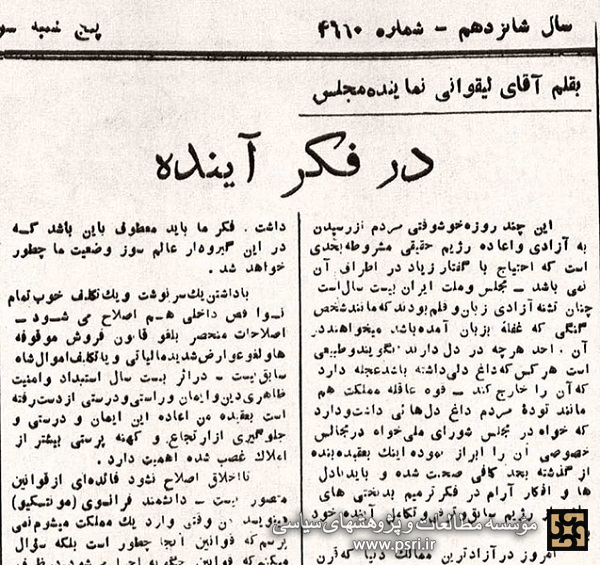 سال شانزدهم - شماره ۴۹۶۰
پنج شنبه سو
بقلم آقای لیقوانی نماینده مجلس
در فکر آینده
این چند روزه خوشوقتی مردم از رسیدن
به آزادی و اعاده رژیم حقیقی مشروطه بحدی
است که احتیاج با گفتار زیاد در اطراف آن
نمی باشد - مجلس و ملت ایران بیست سال است
چنان تشنه آزادی زبان و قلم بودند که مانند شخص
گنگی که غفلة بزبان آمده باشد میخواهند در
آن. احد هرچه در دل دارند بگویند و طبیعی
است هر کس که داغ دلی داشته باشد عجله دارد
که آن را خارج کند - قوه عاقله مملکت هم
مانند تودهٔ مردم داغ دل هائی داشت و دارد
که خواه در مجلس شورای ملی خواه در مجالس
خصوصی آن را ابراز نموده اینك بعقیده بنده
از گذشته بحد کافی صحبت شده و باید با دل
ها و افکار آرام در فکر ترمیم بدبختی های
رژیم سابق و ترقی و تکامل آینده خود
امروز در آزادترین ممالك دنیا که قرن
داشت. فکر ما باید معطوف باین باشد که
در این گیرودار عالم سوز وضعیت ما چطور
خواهد شد.
با داشتن یك سرنوشت و یك تکلف خوب تمام
نواقص داخلی هم اصلاح می شود -
اصلاحات منحصر بلغو قانون فروش موقوفه
ها و لغو عوارض شدید مالیاتی و یا تکلف اموال شاه
سابق نیست - در اثر بیست سال استبداد و امنیت
ظاهری دین و ایمان و راستی و درستی از دست رفته
است بعقیده من اعاده این ایمان و درستی و
جلوگیری از ارتجاع و کهنه پرستی بیشتر از
املاك غصب شده اهمیت دارد.
تا اخلاق اصلاح نشود فائده‌ای از قوانین
متصور نیست - دانشمند فرانسوی (مونتسکیو)
مینویسد من وقتی وارد یك مملکت میشوم نمی
پرسم که قوانین آنجا چطور است بلکه سؤال
میکنم که قوانین چگونه اجرا می شود
مؤسسه مطالعات و پژوهشهای سیاسی
www.psri.ir